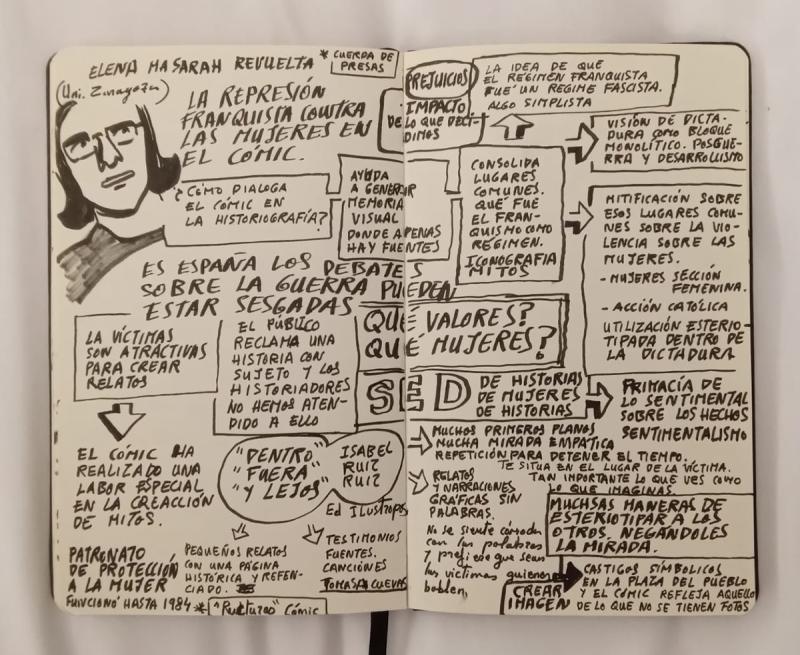 ELENA MASARAH REVUELTA
(Uni. Zaragoza)
* CUERDA DE
PRESAS
LA REPRESIÓN
FRANQUISTA CONTRA
LAS MUJERES EN
EL CÓMIC.
¿CÓMO DIALOGA
EL CÓMIC EN
LA HISTORIOGRAFÍA?
AYUDA
A GENERAR
MEMORIA
VISUAL
DONDE APENAS
HAY FUENTES
ES ESPAÑA LOS DEBATES
SOBRE LA GUERRA PUEDEN
ESTAR SESGADAS
LA VÍCTIMAS
SON ATRACTIVAS
PARA CREAR
RELATOS
EL PÚBLICO
RECLAMA UNA
HISTORIA CON
SUJETO Y LOS
HISTORIADORES
NO HEMOS ATEN-
DIDO A ELLO
EL CÓMIC HA
REALIZADO UNA
LABOR ESPECIAL
EN LA CREACCIÓN
DE MITOS.
"DENTRO"
"FUERA"
"Y LEJOS"
ISABEL
RUIZ
RUIZ
Ed Ilustropos
PATRONATO
DE PROTECCIÓN
A LA MUJER
FUNCIONÓ HASTA 1984
PEQUEÑOS RELATOS
CON UNA PÁGINA
HISTÓRICA Y REFEN-
CIADO.
TESTIMONIOS
FUENTES.
CANCIONES
TOMASA CUEVAS
* "Rupturas" Cómic
PREJUICIOS
IMPACTO
DE LO QUE DECI-
DIMOS
LA IDEA DE QUE
EL RÉGIMEN FRANQUISTA
FUE UN REGIME FASCISTA.
ALGO SIMPLISTA
CONSOLIDA
LUGARES
COMUNES.
QUÉ FUE
EL FRAN-
QUISMO COMO
RÉGIMEN.
ICONOGRAFIA
MITOS
VISIÓN DE DICTA-
DURA COMO BLOQUE
MONOLÍTICO. POSGUE-
RRA Y DESARROLLISMO
MITIFICACIÓN SOBRE
ESOS LUGARES COMU-
NES SOBRE LA VIO-
LENCIA SOBRE LAS
MUJERES.
- MUJERES SECCIÓN
FEMENINA.
- ACCIÓN CATÓLICA
UTILIZACIÓN ESTERIO-
TIPADA DENTRO DE
LA DICTADURA
QUÉ VALORES?
QUÉ MUJERES?
SED DE HISTORIAS
DE MUJERES
DE HISTORIAS
PRIMACÍA DE
LO SENTIMENTAL
SOBRE LOS HECHOS
SENTIMENTALISMO
MUCHOS PRIMEROS PLANOS
MUCHA MIRADA EMPÁTICA
REPETICIÓN PARA DETENER EL TIEMPO.
TE SITUA EN EL LUGAR DE LA VÍCTIMA.
TAN IMPORTANTE LO QUE VES COMO
LO QUE IMAGINAS.
RELATOS
Y NARRACIONES
GRÁFICAS SIN
PALABRAS.
No se siente cómoda
con las palabras
y prefiere que sean
las víctimas quienes
hablen,
MUCHSAS MANERAS DE
ESTERIOTIPAR A LOS
OTROS. NEGÁNDOLES
LA MIRADA.
CREAR
IMAGEN
CASTIGOS SIMBOLICOS
EN LA PLAZA DEL PUEBLO
Y EL CÓMIC REFLEJA AQUELLO
DE LO QUE NO SE TIENEN FOTOS